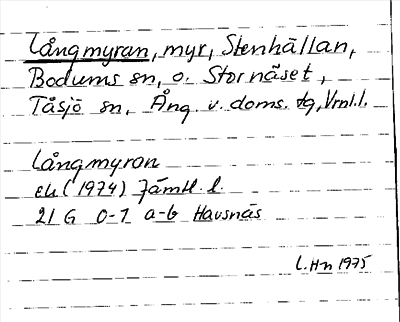 Långmyran, myr, Stenhällan,
Bodums sn, o. Stornäset,
Tåsjö sn, Ång. v. doms. tg, Vrnl.l.
Långmyran
ek (1974) Jämtl. l.
21 G 0-1 a-b Havsnäs
L. Hn 1975